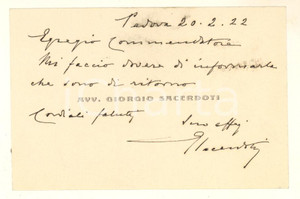 Padova 20.2.22
Egregio Commendatore
Mi faccio dovere di informarla
che sono di ritorno
AVV. GIORGIO SACERDOTI
Cordiali saluti
Suo aff
GSacerdoti